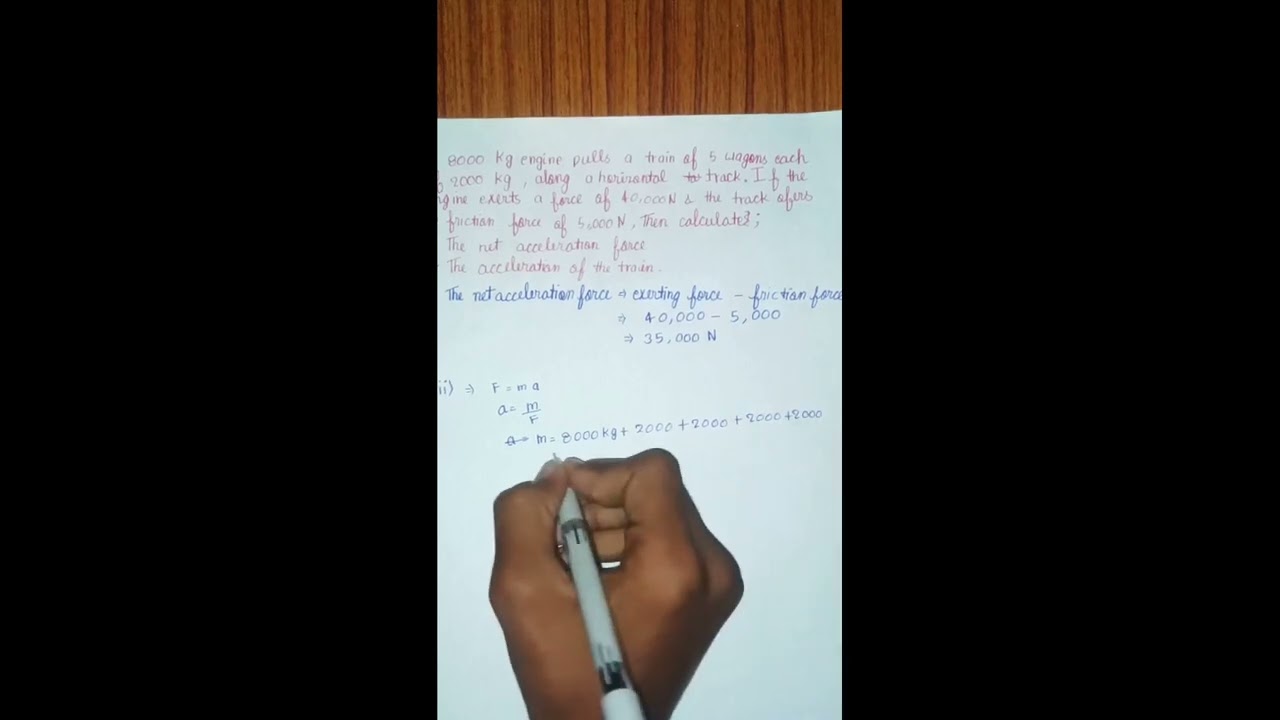 8000 Kg engine pulls a train of 5 wagons each
2000 kg, along a horizontal track. If the
gine exerts a force of 40,000N & the track ofers
friction force of 5,000N, Then calculate?;
The net acceleration force
The acceleration of the train.
The net acceleration force ⇒ exerting force - friction force
⇒ 40,000 - 5,000
⇒ 35,000 N
ii) ⇒ F = ma
a = m/F
m = 8000kg + 2000 + 2000 + 2000 + 2000